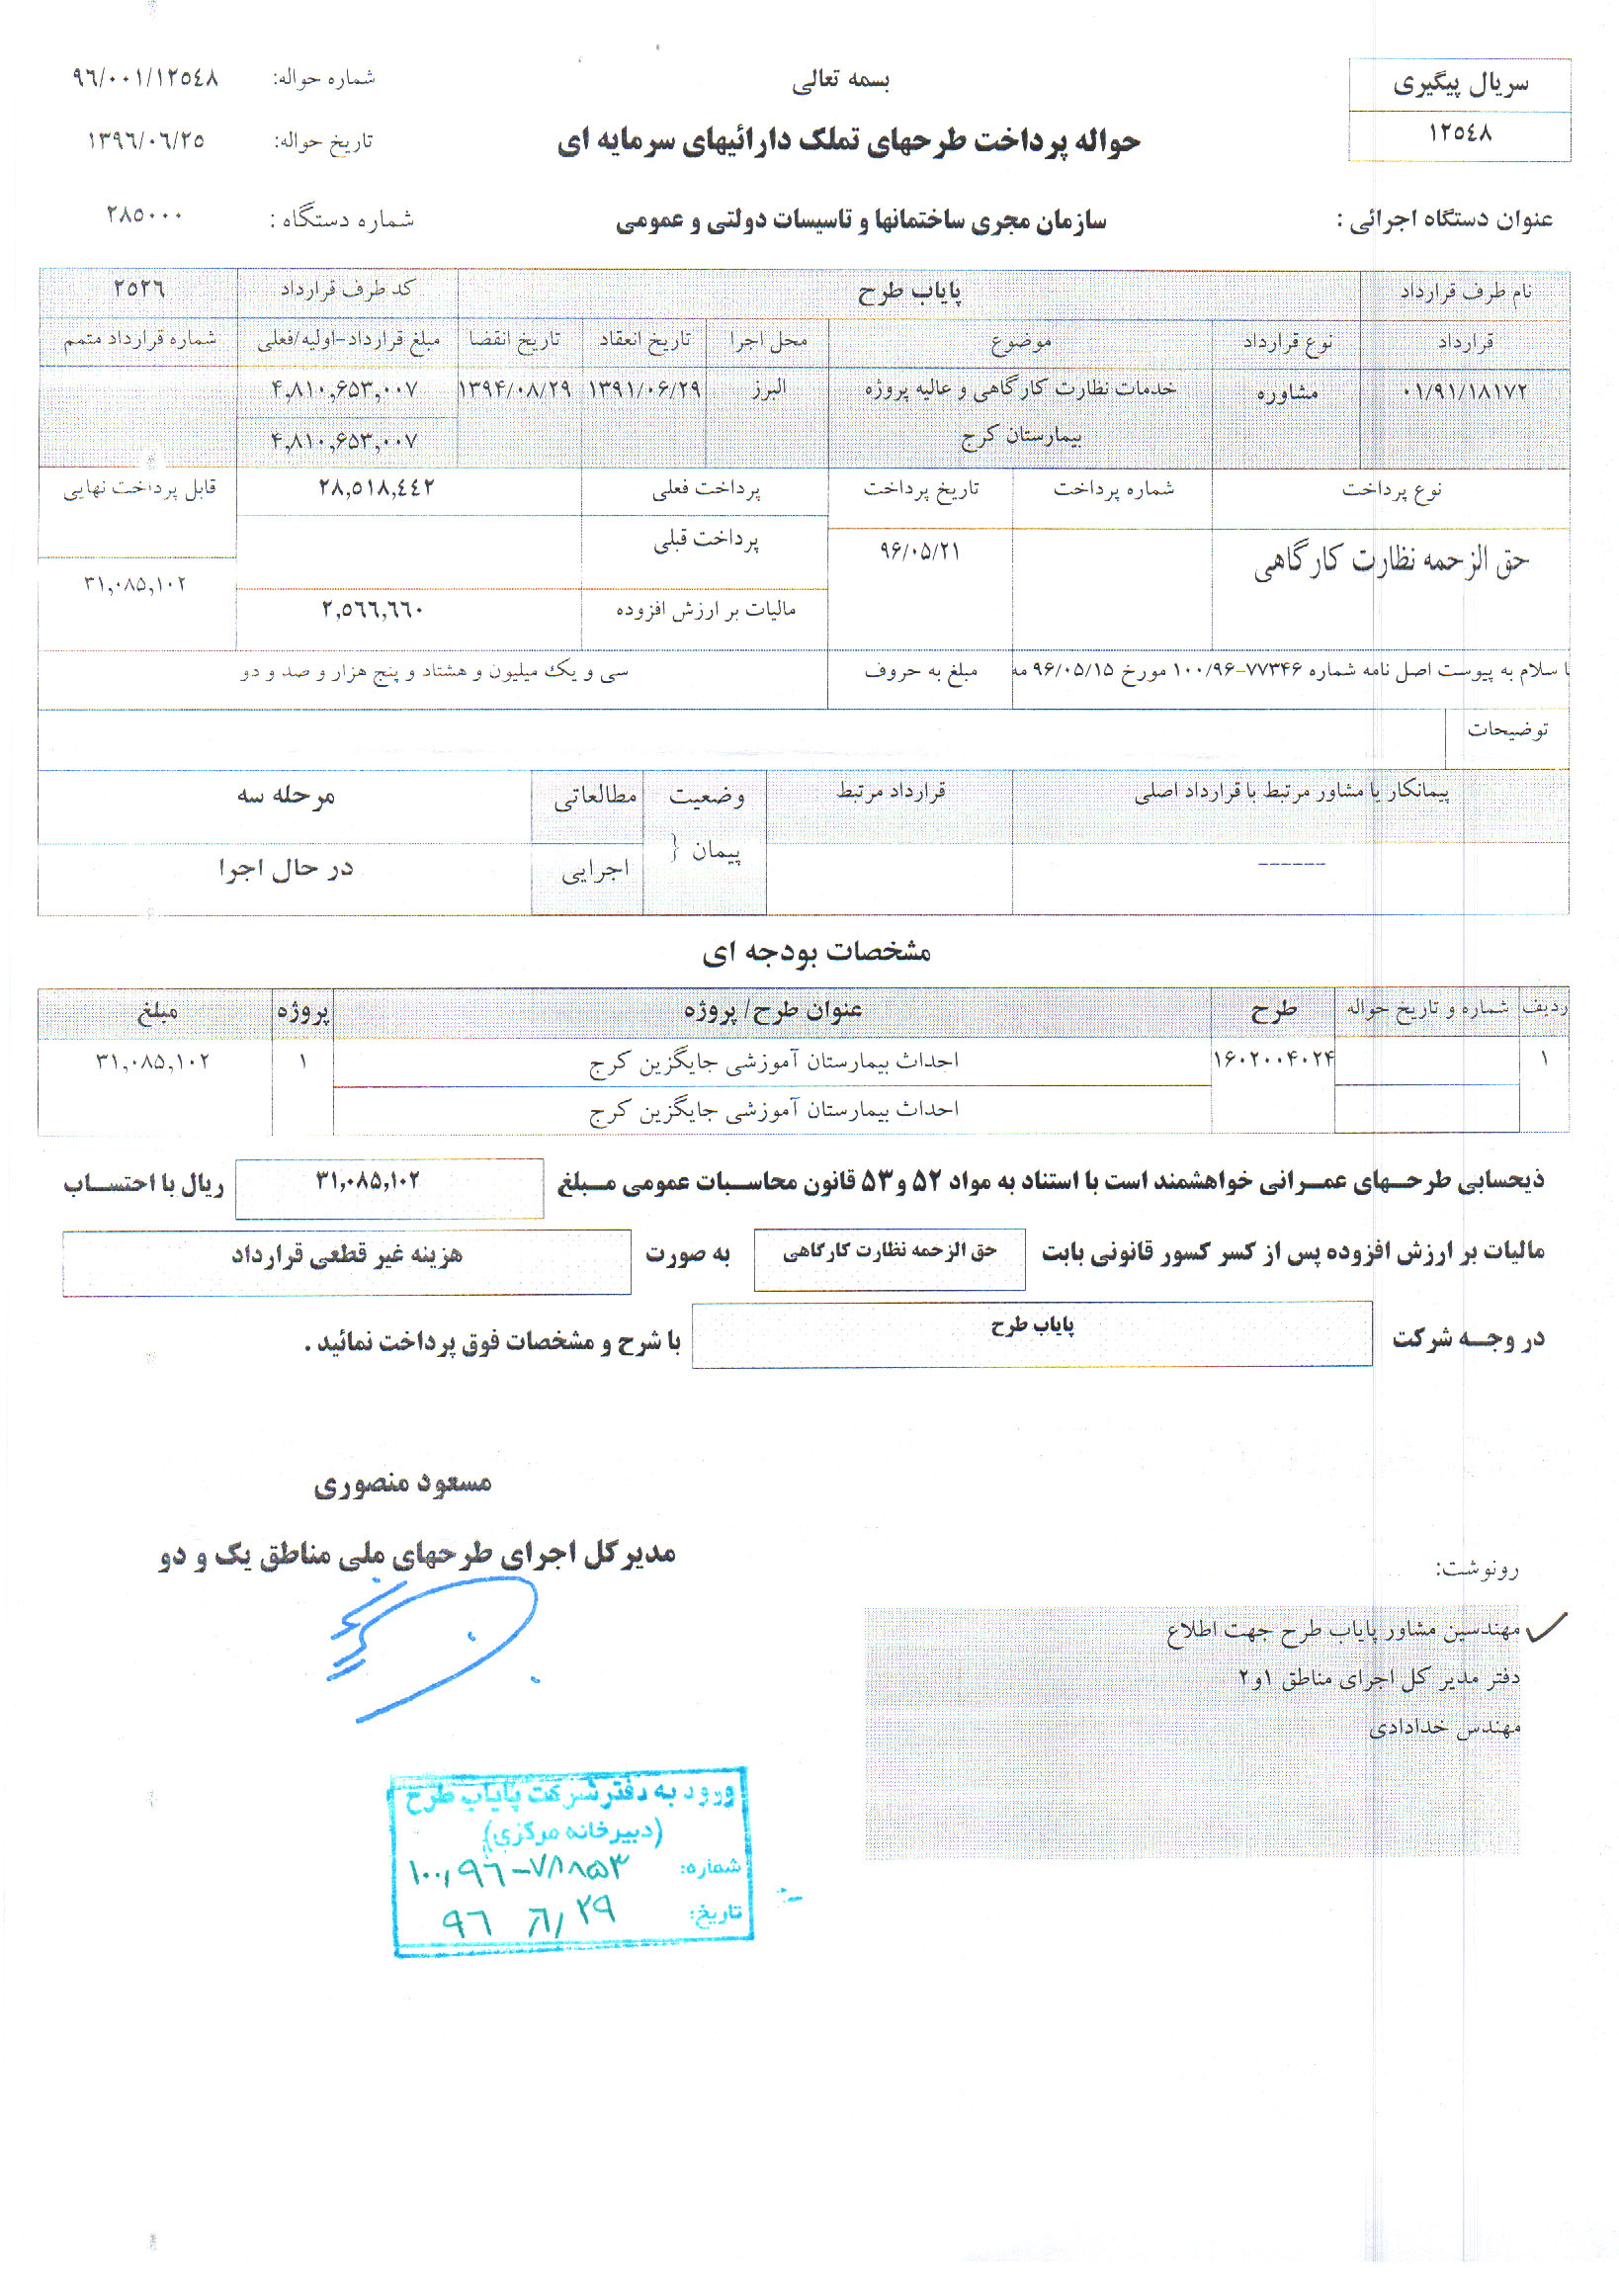 بسمه تعالی
سریال پیگیری
۱۲۵٤۸
شماره حواله: ۹٦/۰۰۱/۱۲۵٤۸
حواله پرداخت طرحهای تملک دارائیهای سرمایه ای
تاریخ حواله: ۱۳۹٦/۰٦/۲۵
عنوان دستگاه اجرائی : سازمان مجری ساختمانها و تاسیسات دولتی و عمومی
شماره دستگاه : ۲۸۵۰۰۰
نام طرف قرارداد پایاب طرح کد طرف قرارداد ۲۵۲٦
قرارداد نوع قرارداد موضوع محل اجرا تاریخ انعقاد تاریخ انقضا مبلغ قرارداد-اولیه/فعلی شماره قرارداد متمم
۰۱/۹۱/۱۸۱۷۲ مشاوره خدمات نظارت کارگاهی و عالیه پروژه البرز ۱۳۹۱/۰۶/۲۹ ۱۳۹۴/۰۸/۲۹ ۴,۸۱۰,۶۵۳,۰۰۷
بیمارستان کرج ۴,۸۱۰,۶۵۳,۰۰۷
نوع پرداخت شماره پرداخت تاریخ پرداخت پرداخت فعلی ۲۸,۵۱۸,٤٤۲ قابل پرداخت نهایی
حق الزحمه نظارت کارگاهی ۹۶/۰۵/۲۱ پرداخت قبلی
۳۱,۰۸۵,۱۰۲
مالیات بر ارزش افزوده ۲,۵٦٦,٦٦۰
ا سلام به پیوست اصل نامه شماره ۷۷۳۴۶-۱۰۰/۹۶ مورخ ۹۶/۰۵/۱۵ مه مبلغ به حروف سی و یک میلیون و هشتاد و پنج هزار و صد و دو
توضیحات
پیمانکار یا مشاور مرتبط با قرارداد اصلی قرارداد مرتبط وضعیت مطالعاتی مرحله سه
------ پیمان { اجرایی در حال اجرا
مشخصات بودجه ای
ردیف شماره و تاریخ حواله طرح عنوان طرح/ پروژه پروژه مبلغ
۱ ۱۶۰۲۰۰۴۰۲۴ احداث بیمارستان آموزشی جایگزین کرج ۱ ۳۱,۰۸۵,۱۰۲
احداث بیمارستان آموزشی جایگزین کرج
ذیحسابی طرحهای عمرانی خواهشمند است با استناد به مواد ۵۲ و۵۳ قانون محاسبات عمومی مبلغ ۳۱,۰۸۵,۱۰۲ ریال با احتساب
مالیات بر ارزش افزوده پس از کسر کسور قانونی بابت حق الزحمه نظارت کارگاهی به صورت هزینه غیر قطعی قرارداد
در وجه شرکت پایاب طرح با شرح و مشخصات فوق پرداخت نمائید .
مسعود منصوری
مدیرکل اجرای طرحهای ملی مناطق یک و دو
رونوشت:
مهندسین مشاور پایاب طرح جهت اطلاع
دفتر مدیر کل اجرای مناطق ۱و۲
مهندس خدادادی
ورود به دفتر شرکت پایاب طرح
(دبیرخانه مرکزی)
شماره: ۱۰۰,۹٦-۷۸۸۵۳
تاریخ: ۹٦ /٦/ ۲۹